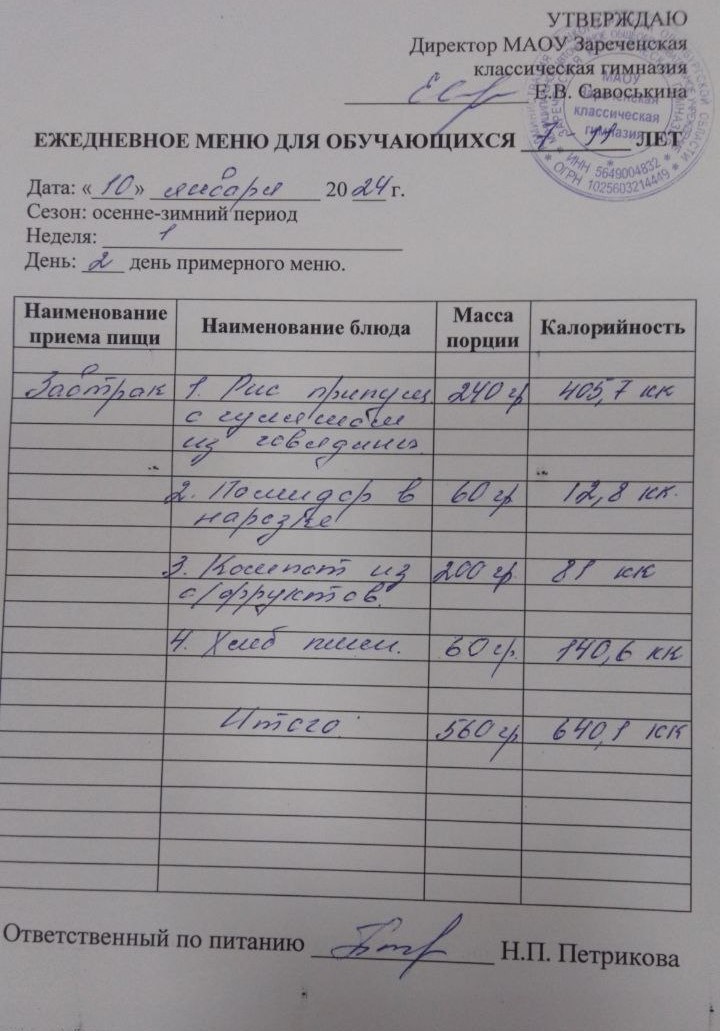 УТВЕРЖДАЮ
Директор МАОУ Зареченская
классическая гимназия
Е.В. Савоськина
МАОУ
Зареченская
классическая
гимназия
* ИНН 5649004832 *
* ОГРН 1025603214449 *
ЕЖЕДНЕВНОЕ МЕНЮ ДЛЯ ОБУЧАЮЩИХСЯ 7 - 11 ЛЕТ
Дата: «10» января 2024 г.
Сезон: осенне-зимний период
Неделя: 1
День: 2 день примерного меню.
Наименование приема пищи Наименование блюда Масса порции Калорийность
Завтрак 1. Рис припущ 240 гр 405,7 кк
с гуляшом
из говядины.
2. Помидор в 60 гр 12,8 кк.
нарезке
3. Компот из 200 гр. 81 кк
с/фруктов.
4. Хлеб пшен. 60 гр. 140,6 кк
Итого: 560 гр 640,1 кк
Ответственный по питанию Н.П. Петрикова